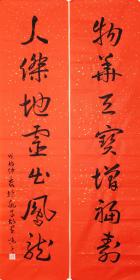 物華天寶增福壽
人傑地靈出鳳龍